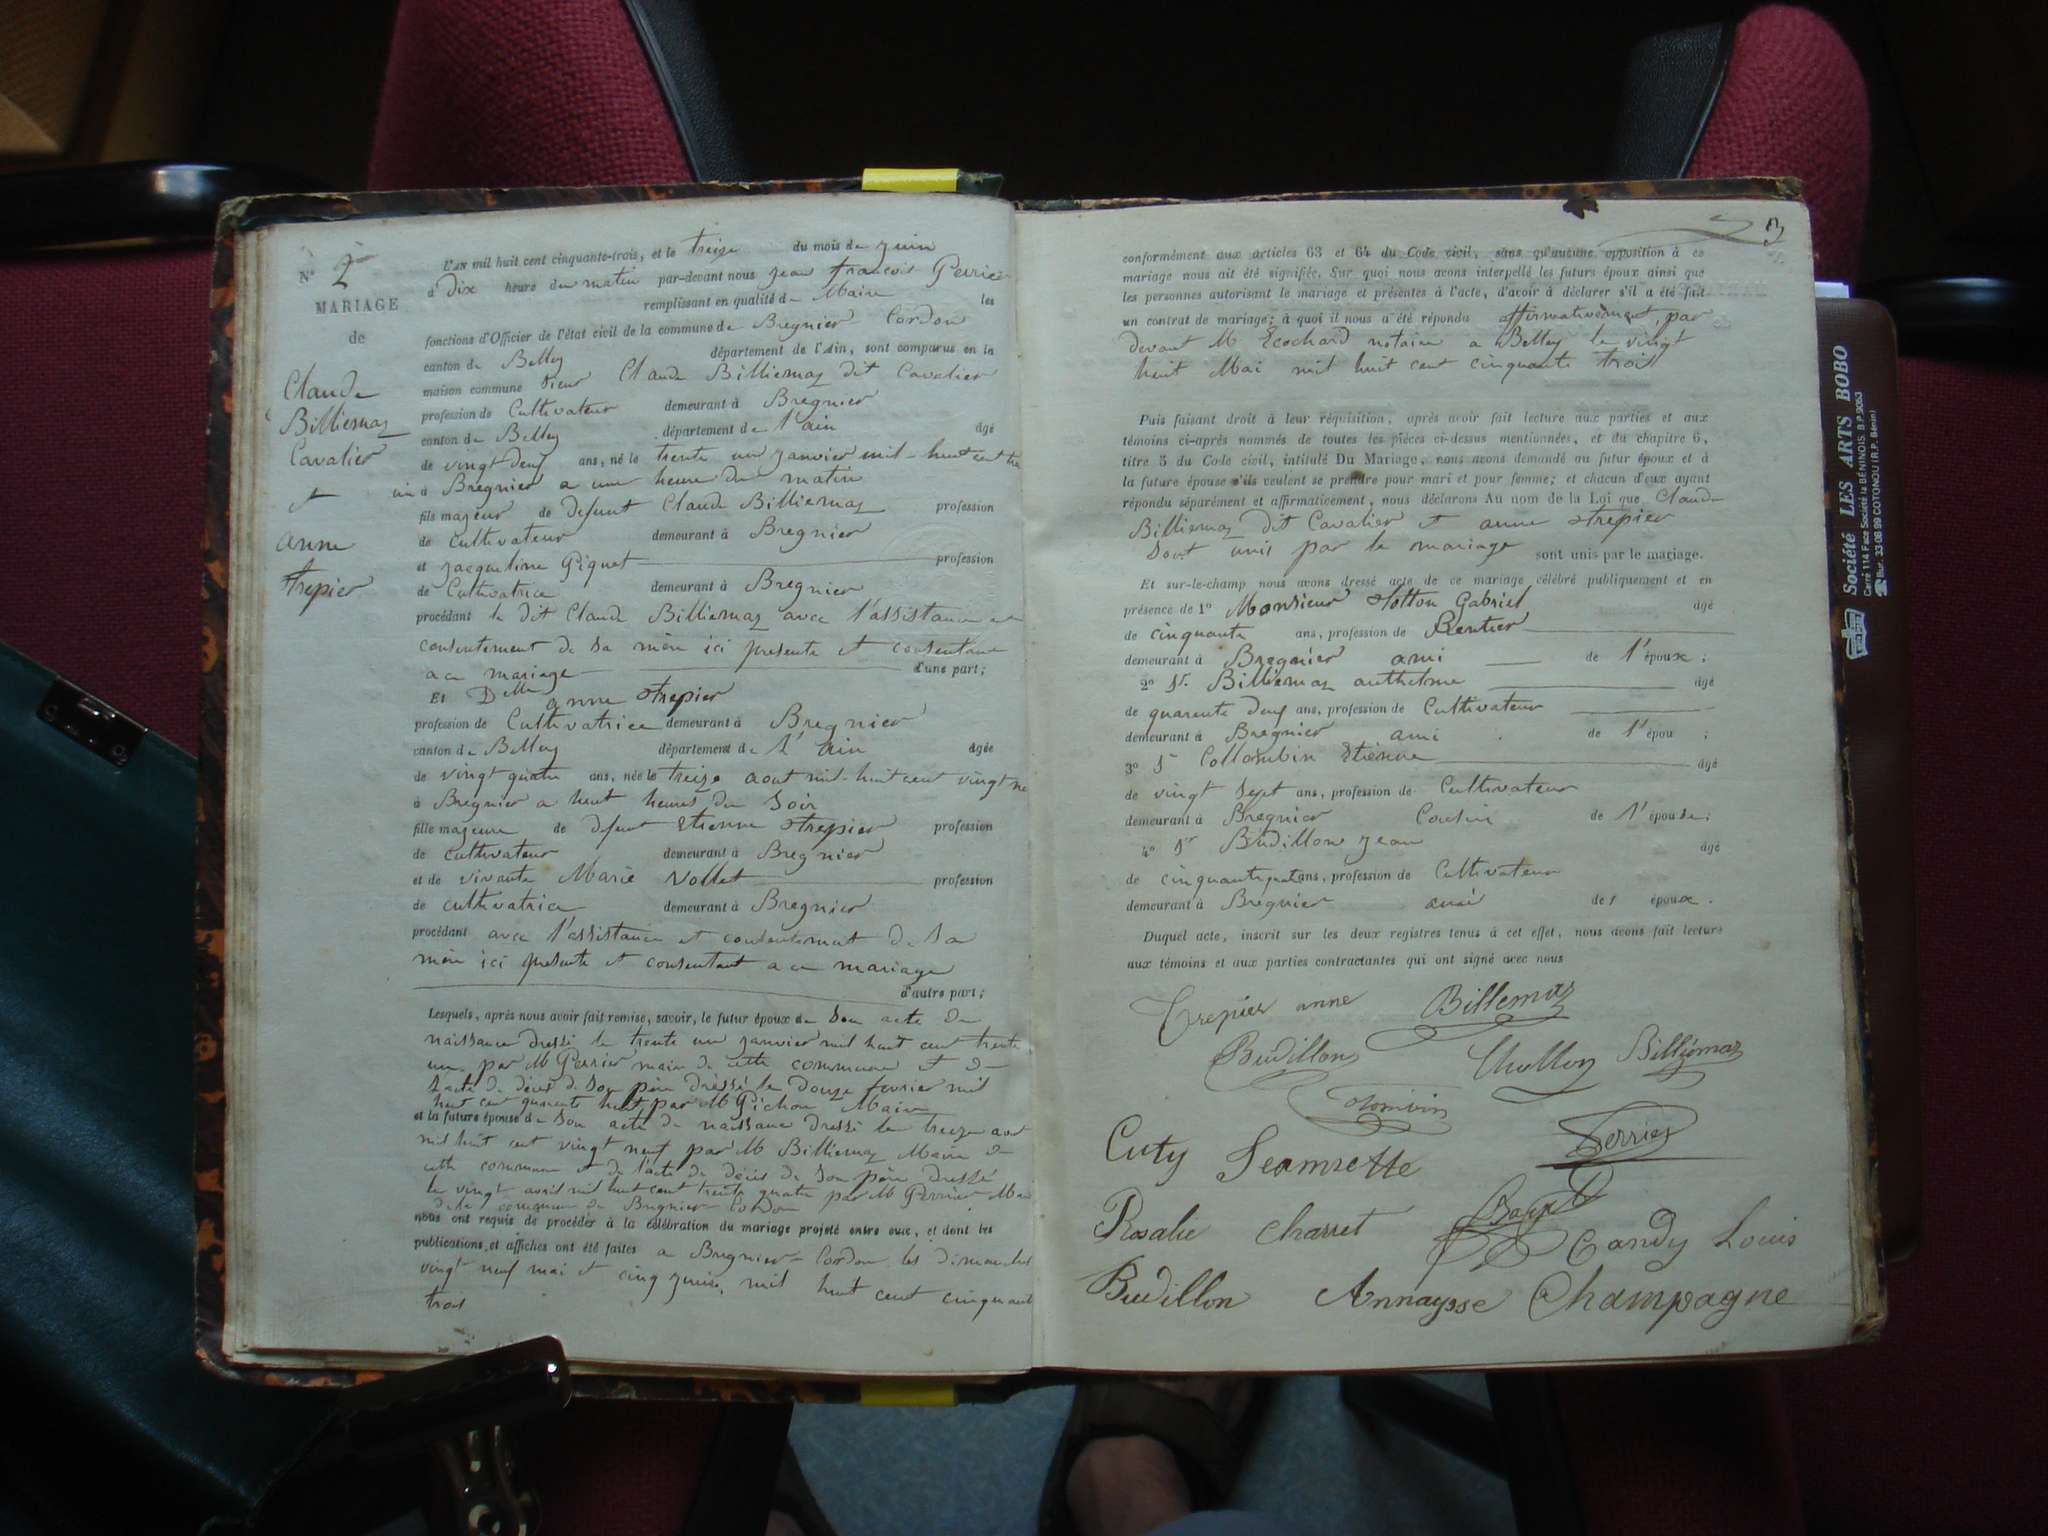 N° 2
MARIAGE
de
Claude
Billiemaz
Cavalier
et
anne
trepier
L'AN mil huit cent cinquante-trois, et le treize du mois de juin
à dix heure du matin par-devant nous jean francois Perrier
remplissant en qualité de Maire les
fonctions d'Officier de l'état civil de la commune de Bregnier Cordon
canton de Belley département de l'Ain, sont comparus en la
maison commune sieur Claude Billiemaz dit Cavalier
profession de Cultivateur demeurant à Bregnier
canton de Belley département de l'ain âgé
de vingt deux ans, né le trente un janvier mil huit cent tre
un à Bregnier a une heure du matin
fils majeur de defunt Claude Billiemaz profession
de cultivateur demeurant à Bregnier
et jacqueline Piquet profession
de Cultivatrice demeurant à Bregnier
procédant le dit Claude Billiemaz avec l'assistance et
consentement de sa mère ici presente et consentant
a ce mariage d'une part;
Et Delle anne trepier
profession de Cultivatrice demeurant à Bregnier
canton de Belley département de l'ain âgée
de vingt quatre ans, née le treize aout mil huit cent vingt ne
à Bregnier a huit heures du soir
fille majeure de defunt etienne trepier profession
de cultivateur demeurant à Bregnier
et de vivante Marie Vollet profession
de cultivatrice demeurant à Bregnier
procédant avec l'assistance et consentement de sa
mère ici presente et consentant a ce mariage
d'autre part;
Lesquels, après nous avoir fait remise, savoir, le futur époux de son acte de
naissance dressé le trente un janvier mil huit cent trente
un par M Perrier maire de cette commune et de
l'acte de décès de son père dressé le douze fevrier mil
huit cent quarante huit par M Pichon Maire
et la future épouse de son acte de naissance dressé le treize aout
mil huit cent vingt neuf par M Billiemaz Maire de
cette commune et de l'acte de décès de son père dressé
le vingt avril mil huit cent trente quatre par M Perrier Maire
de la commune de Bregnier Cordon
nous ont requis de procéder à la célébration du mariage projeté entre eux, et dont les
publications et affiches ont été faites a Bregnier-Cordon les dimanches
vingt neuf mai et cinq juin mil huit cent cinquante
trois
3
conformément aux articles 63 et 64 du Code civil, sans qu'aucune opposition à ce
mariage nous ait été signifiée. Sur quoi nous avons interpellé les futurs époux ainsi que
les personnes autorisant le mariage et présentes à l'acte, d'avoir à déclarer s'il a été fait
un contrat de mariage; à quoi il nous a été répondu affirmativement par
devant M Ecochard notaire a Belley le vingt
huit Mai mil huit cent cinquante trois
Puis faisant droit à leur réquisition, après avoir fait lecture aux parties et aux
témoins ci-après nommés de toutes les pièces ci-dessus mentionnées, et du chapitre 6,
titre 5 du Code civil, intitulé Du Mariage, nous avons demandé au futur époux et à
la future épouse s'ils veulent se prendre pour mari et pour femme; et chacun d'eux ayant
répondu séparément et affirmativement, nous déclarons Au nom de la Loi que Claude
Billiemaz dit Cavalier et anne trepier
sont unis par le mariage sont unis par le mariage.
Et sur-le-champ nous avons dressé acte de ce mariage célébré publiquement et en
présence de 1° Monsieur Gabriel âgé
de cinquante ans, profession de Rentier
demeurant à Bregnier ami de l'époux;
2° Sr Billiemaz anthelme âgé
de quarente deux ans, profession de Cultivateur
demeurant à Bregnier ami de l'épou ;
3° Sr Collombin etienne âgé
de vingt sept ans, profession de Cultivateur
demeurant à Bregnier Cousin de l'épouse;
4° Sr Budillon jean âgé
de cinquante quatre ans, profession de Cultivateur
demeurant à Bregnier ami de l époux.
Duquel acte, inscrit sur les deux registres tenus à cet effet, nous avons fait lecture
aux témoins et aux parties contractantes qui ont signé avec nous
Trepier anne Billemaz
Budillon Billiemaz
Perrier
Cuty Jeannette
Rosalie Charret Candy Louis
Budillon Annaysse Champagne
Société LES ARTS BOBO
Carré 1114 Face Société la BÉNINOIS B.P. 9053
Bur. 33 08 99 COTONOU (R.P. Bénin)